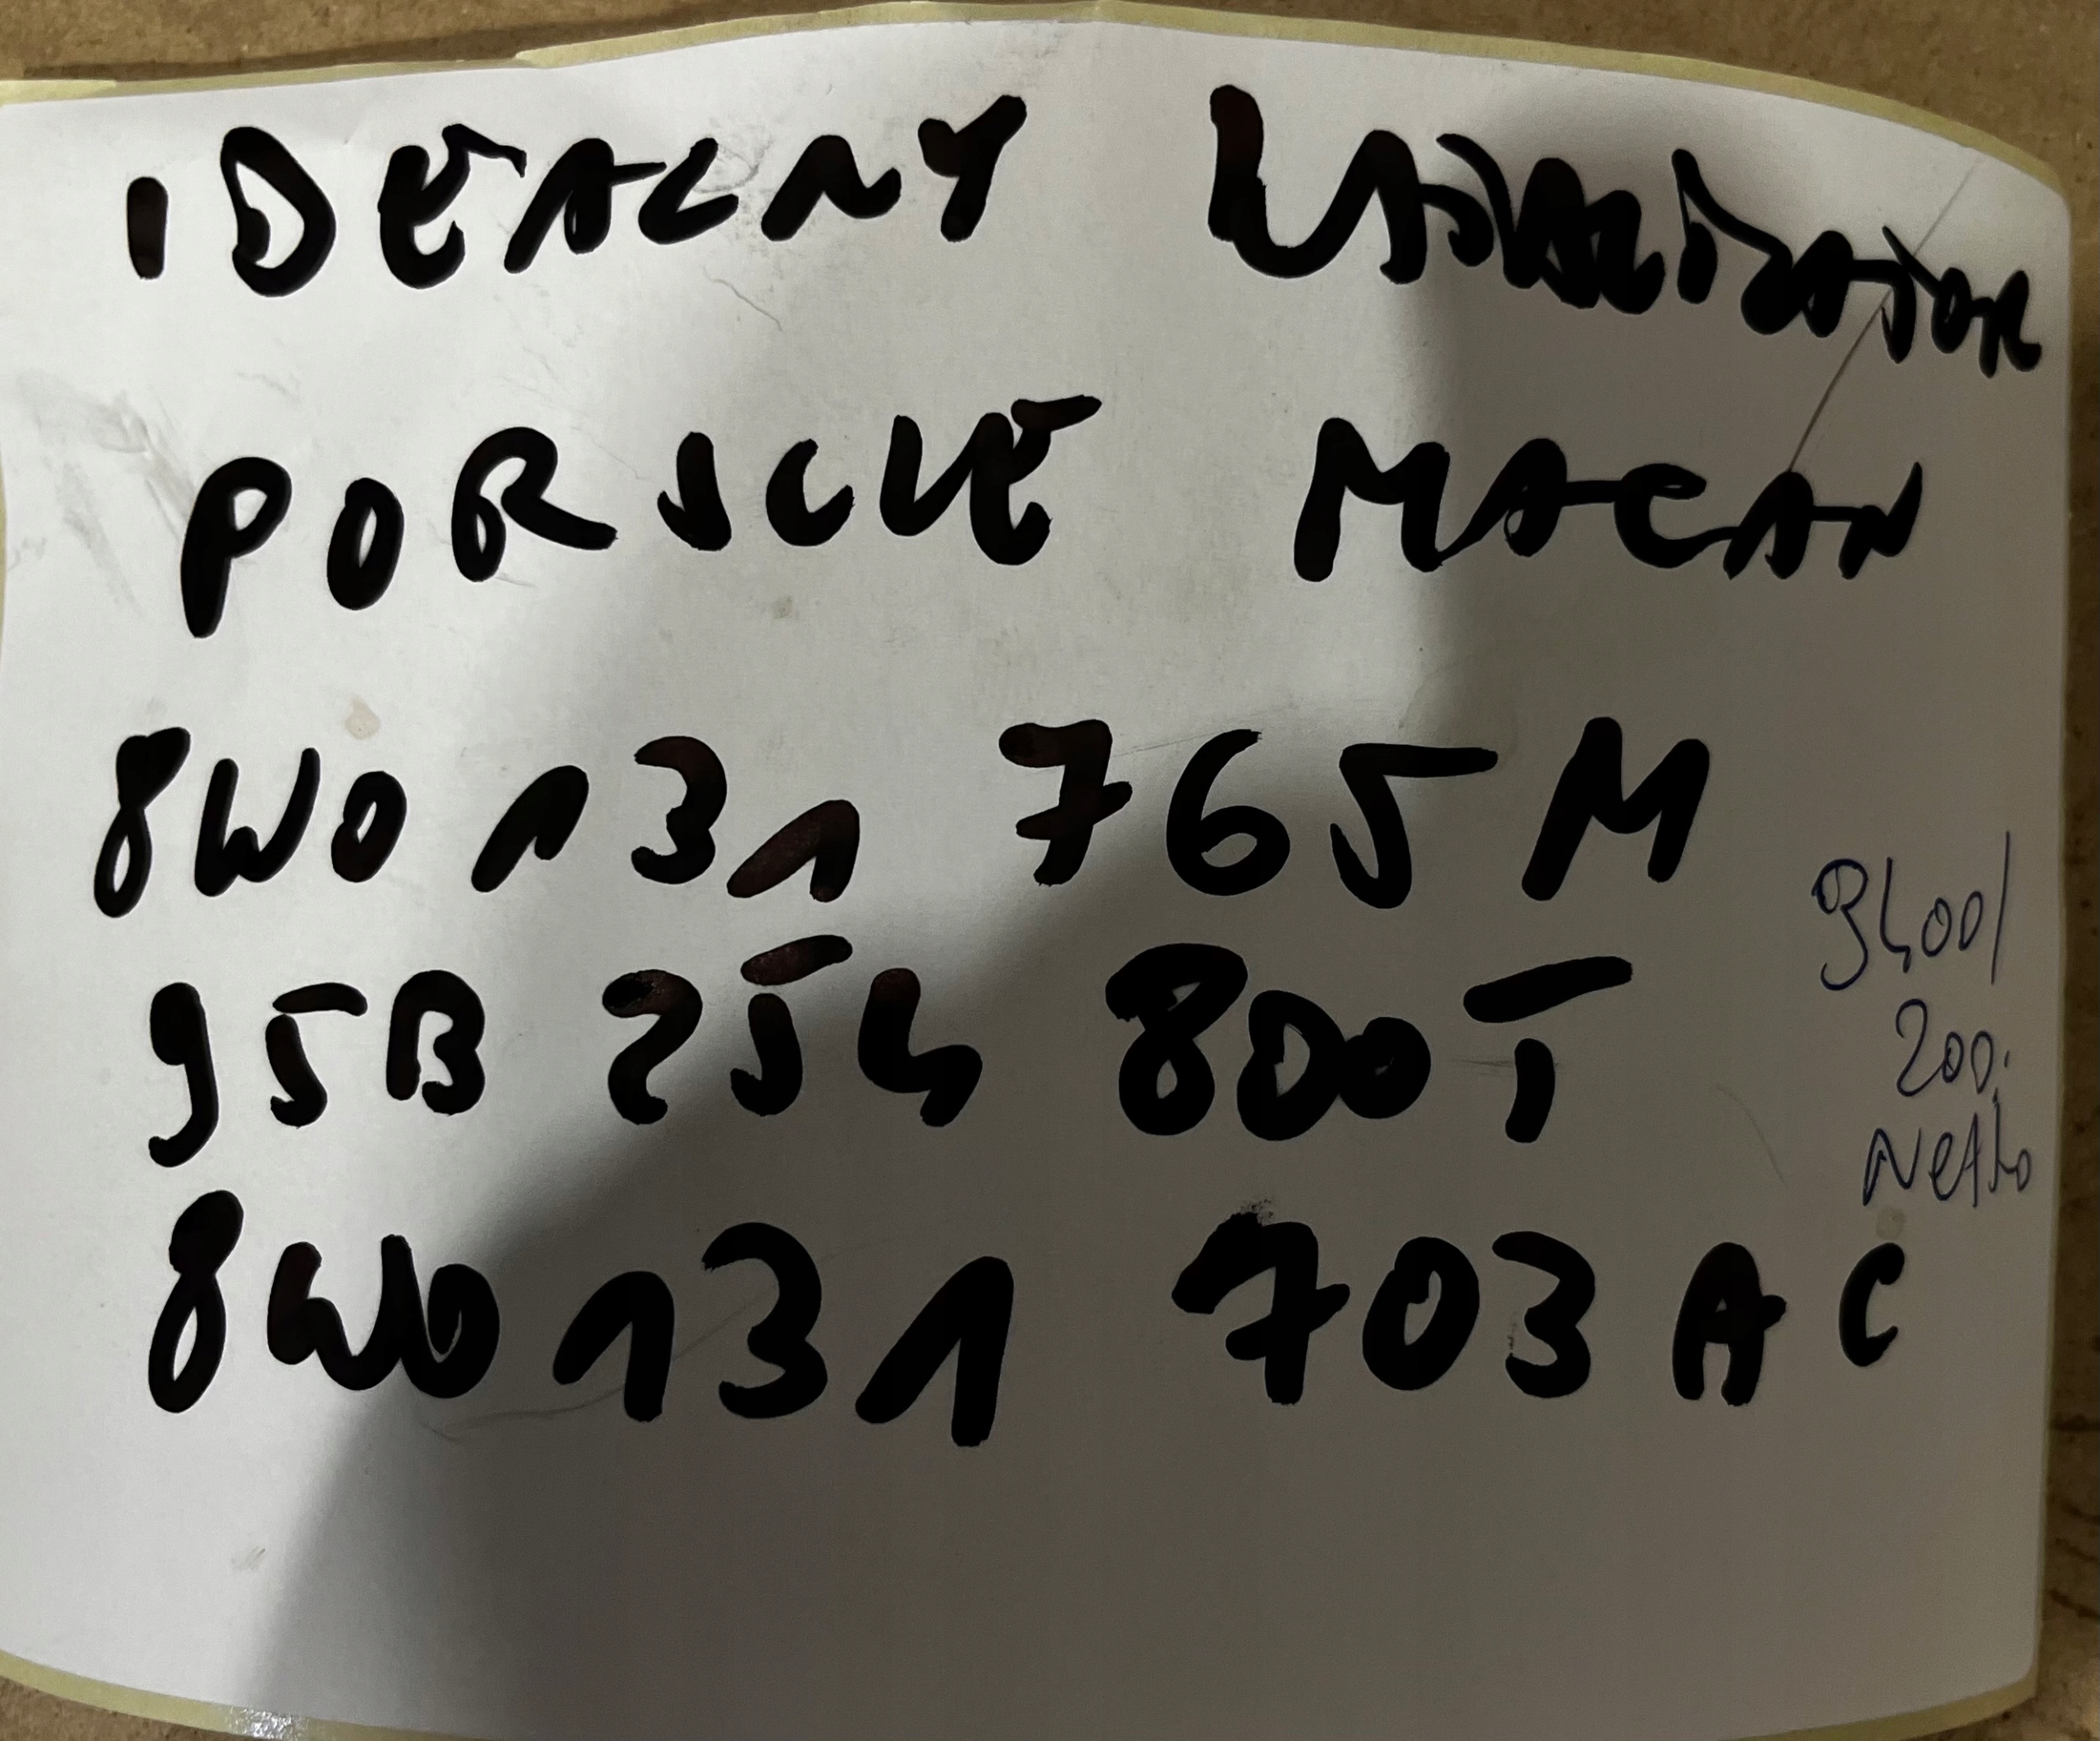 IDEALNY KATALIZATOR
PORSCHE MACAN
8W0 131 765 M
95B 254 800 T
8W0 131 703 AC
3400/
200.
Netto